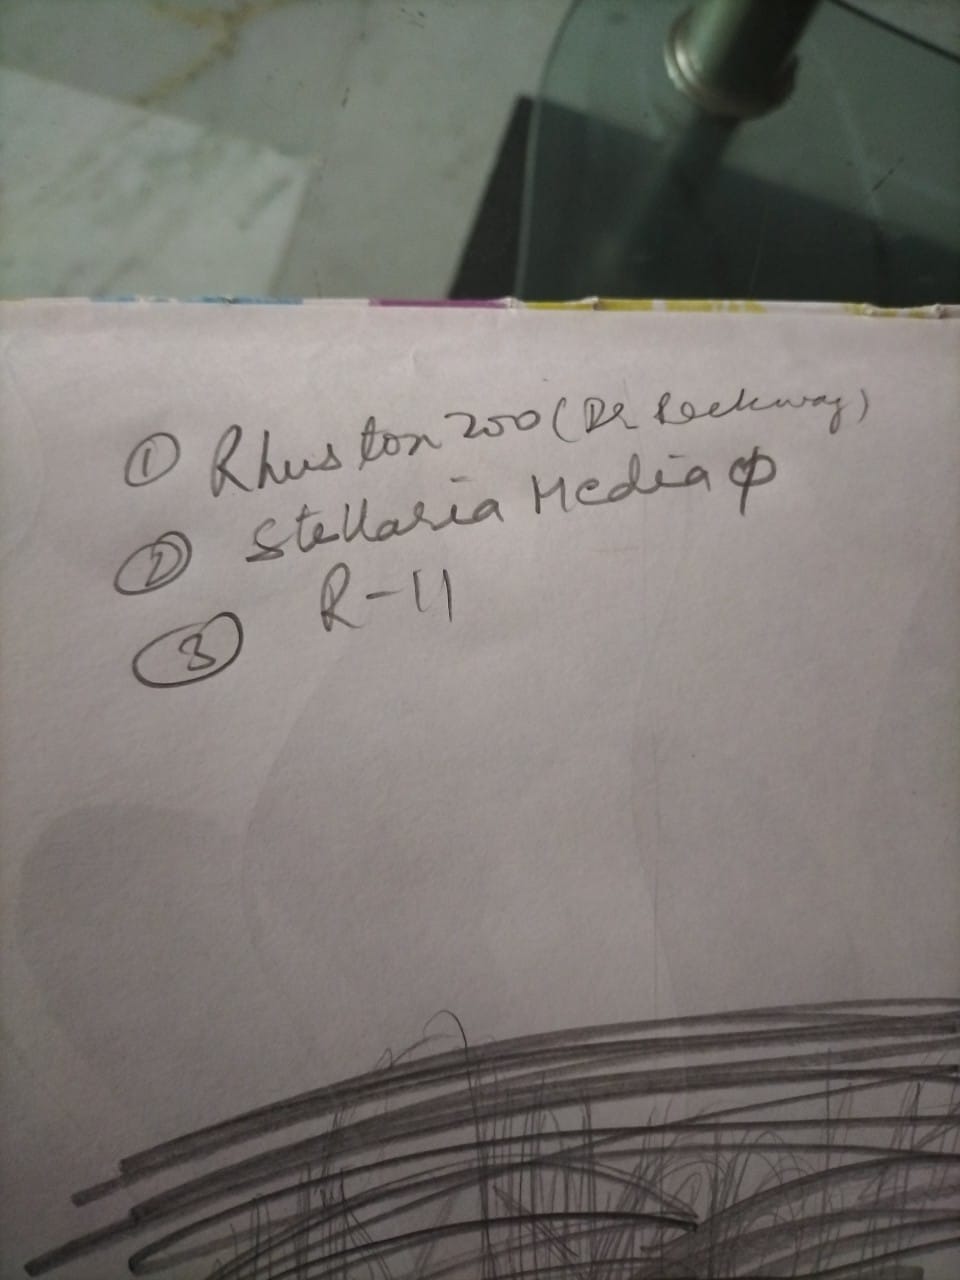 ① Rhus tox 200 (Dr Reckweg)
② Stellaria Media ф
③ R-11